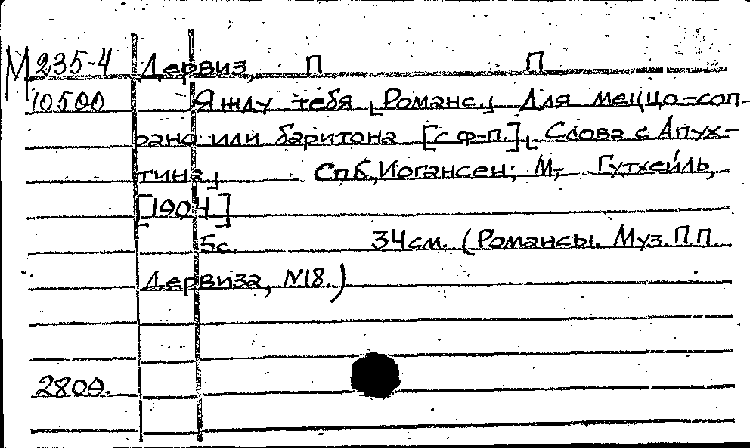 М 235-4 Дервиз, П П
10500 Я жду тебя [Романс.] Для меццо-соп-
рано или баритона [с ф-п.] [Слова с Апух-
тина] Спб, Иогансен; М, Гутхейль,
[1904]
5с. 34см. (Романсы. Муз. П.П.
Дервиза, №18.)
2809.